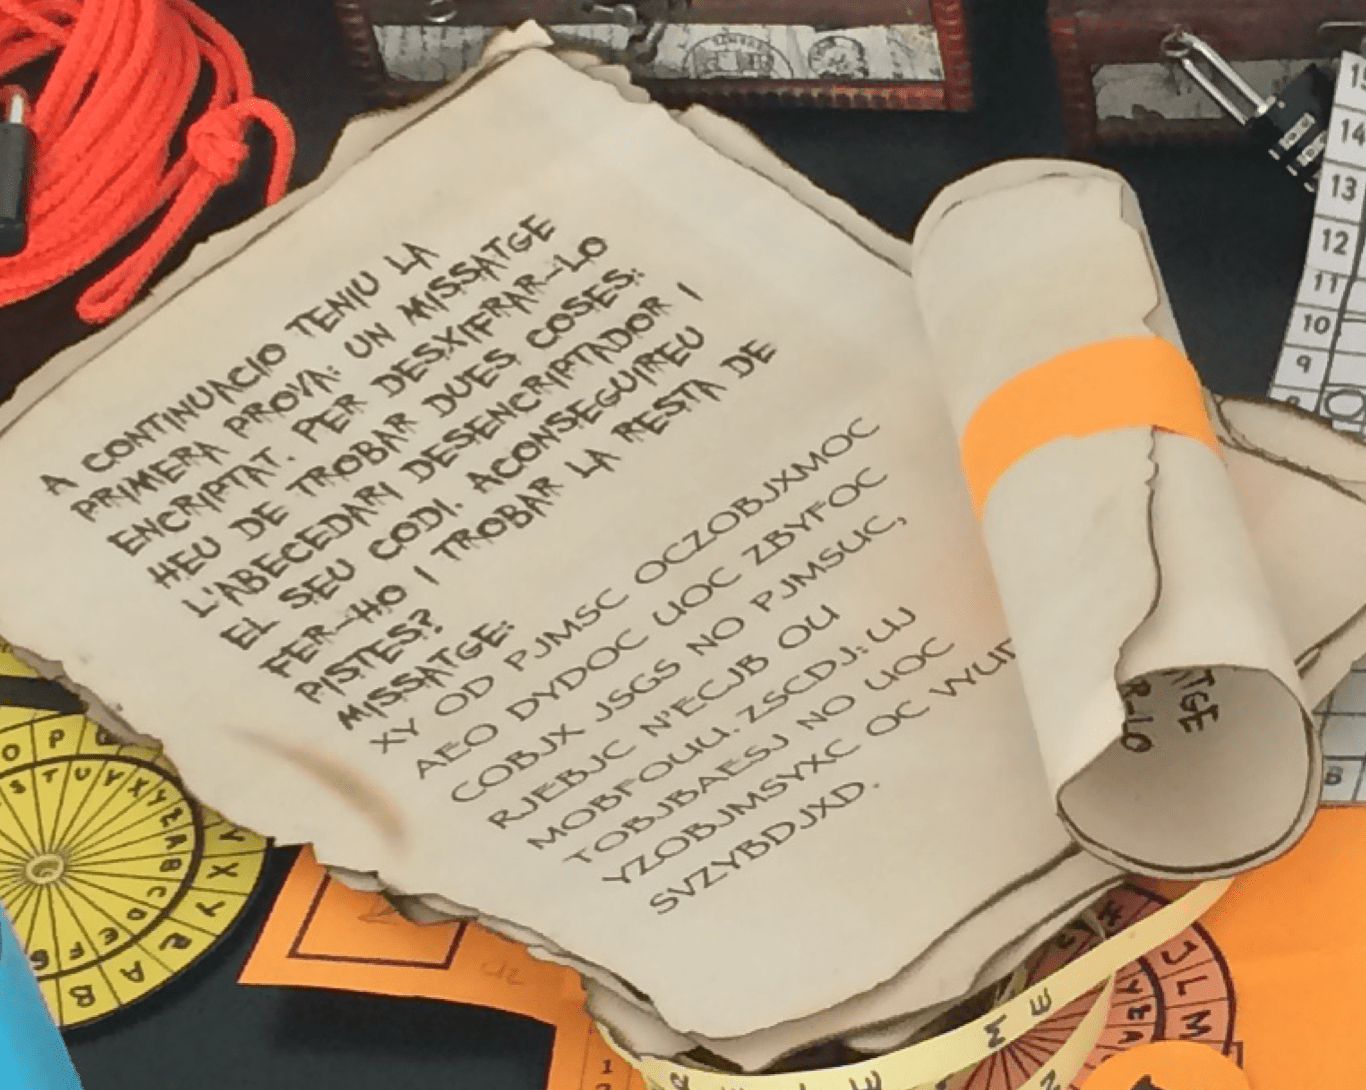 A CONTINUACIO TENIU LA
PRIMERA PROVA: UN MISSATGE
ENCRIPTAT. PER DESXIFRAR-LO
HEU DE TROBAR DUES COSES:
L'ABECEDARI DESENCRIPTADOR I
EL SEU CODI. ACONSEGUIREU
FER-HO I TROBAR LA RESTA DE
PISTES?
MISSATGE:
XY OD PJMSC OCZOBJXMOC
AEO DYDOC UOC ZBYFOC
COBJX JSGS NO PJMSUC,
RJEBJC N'ECJB OU
MOBFOUU. ZSCDJ: UJ
TOBJBAESJ NO UOC
YZOBJMSYXC OC VYUD
SVZYBDJXD.
TGE
R-LO
15
14
13
12
11
10
9